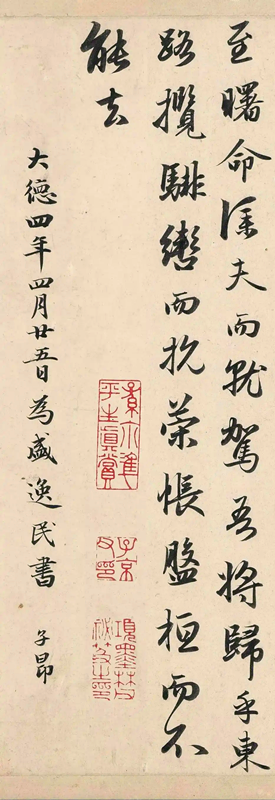 至曙命僕夫而就駕吾將歸乎東
路攬騑轡而抗策悵盤桓而不
能去
大德四年四月廿五日為盛逸民書 子昂
子京
項墨林